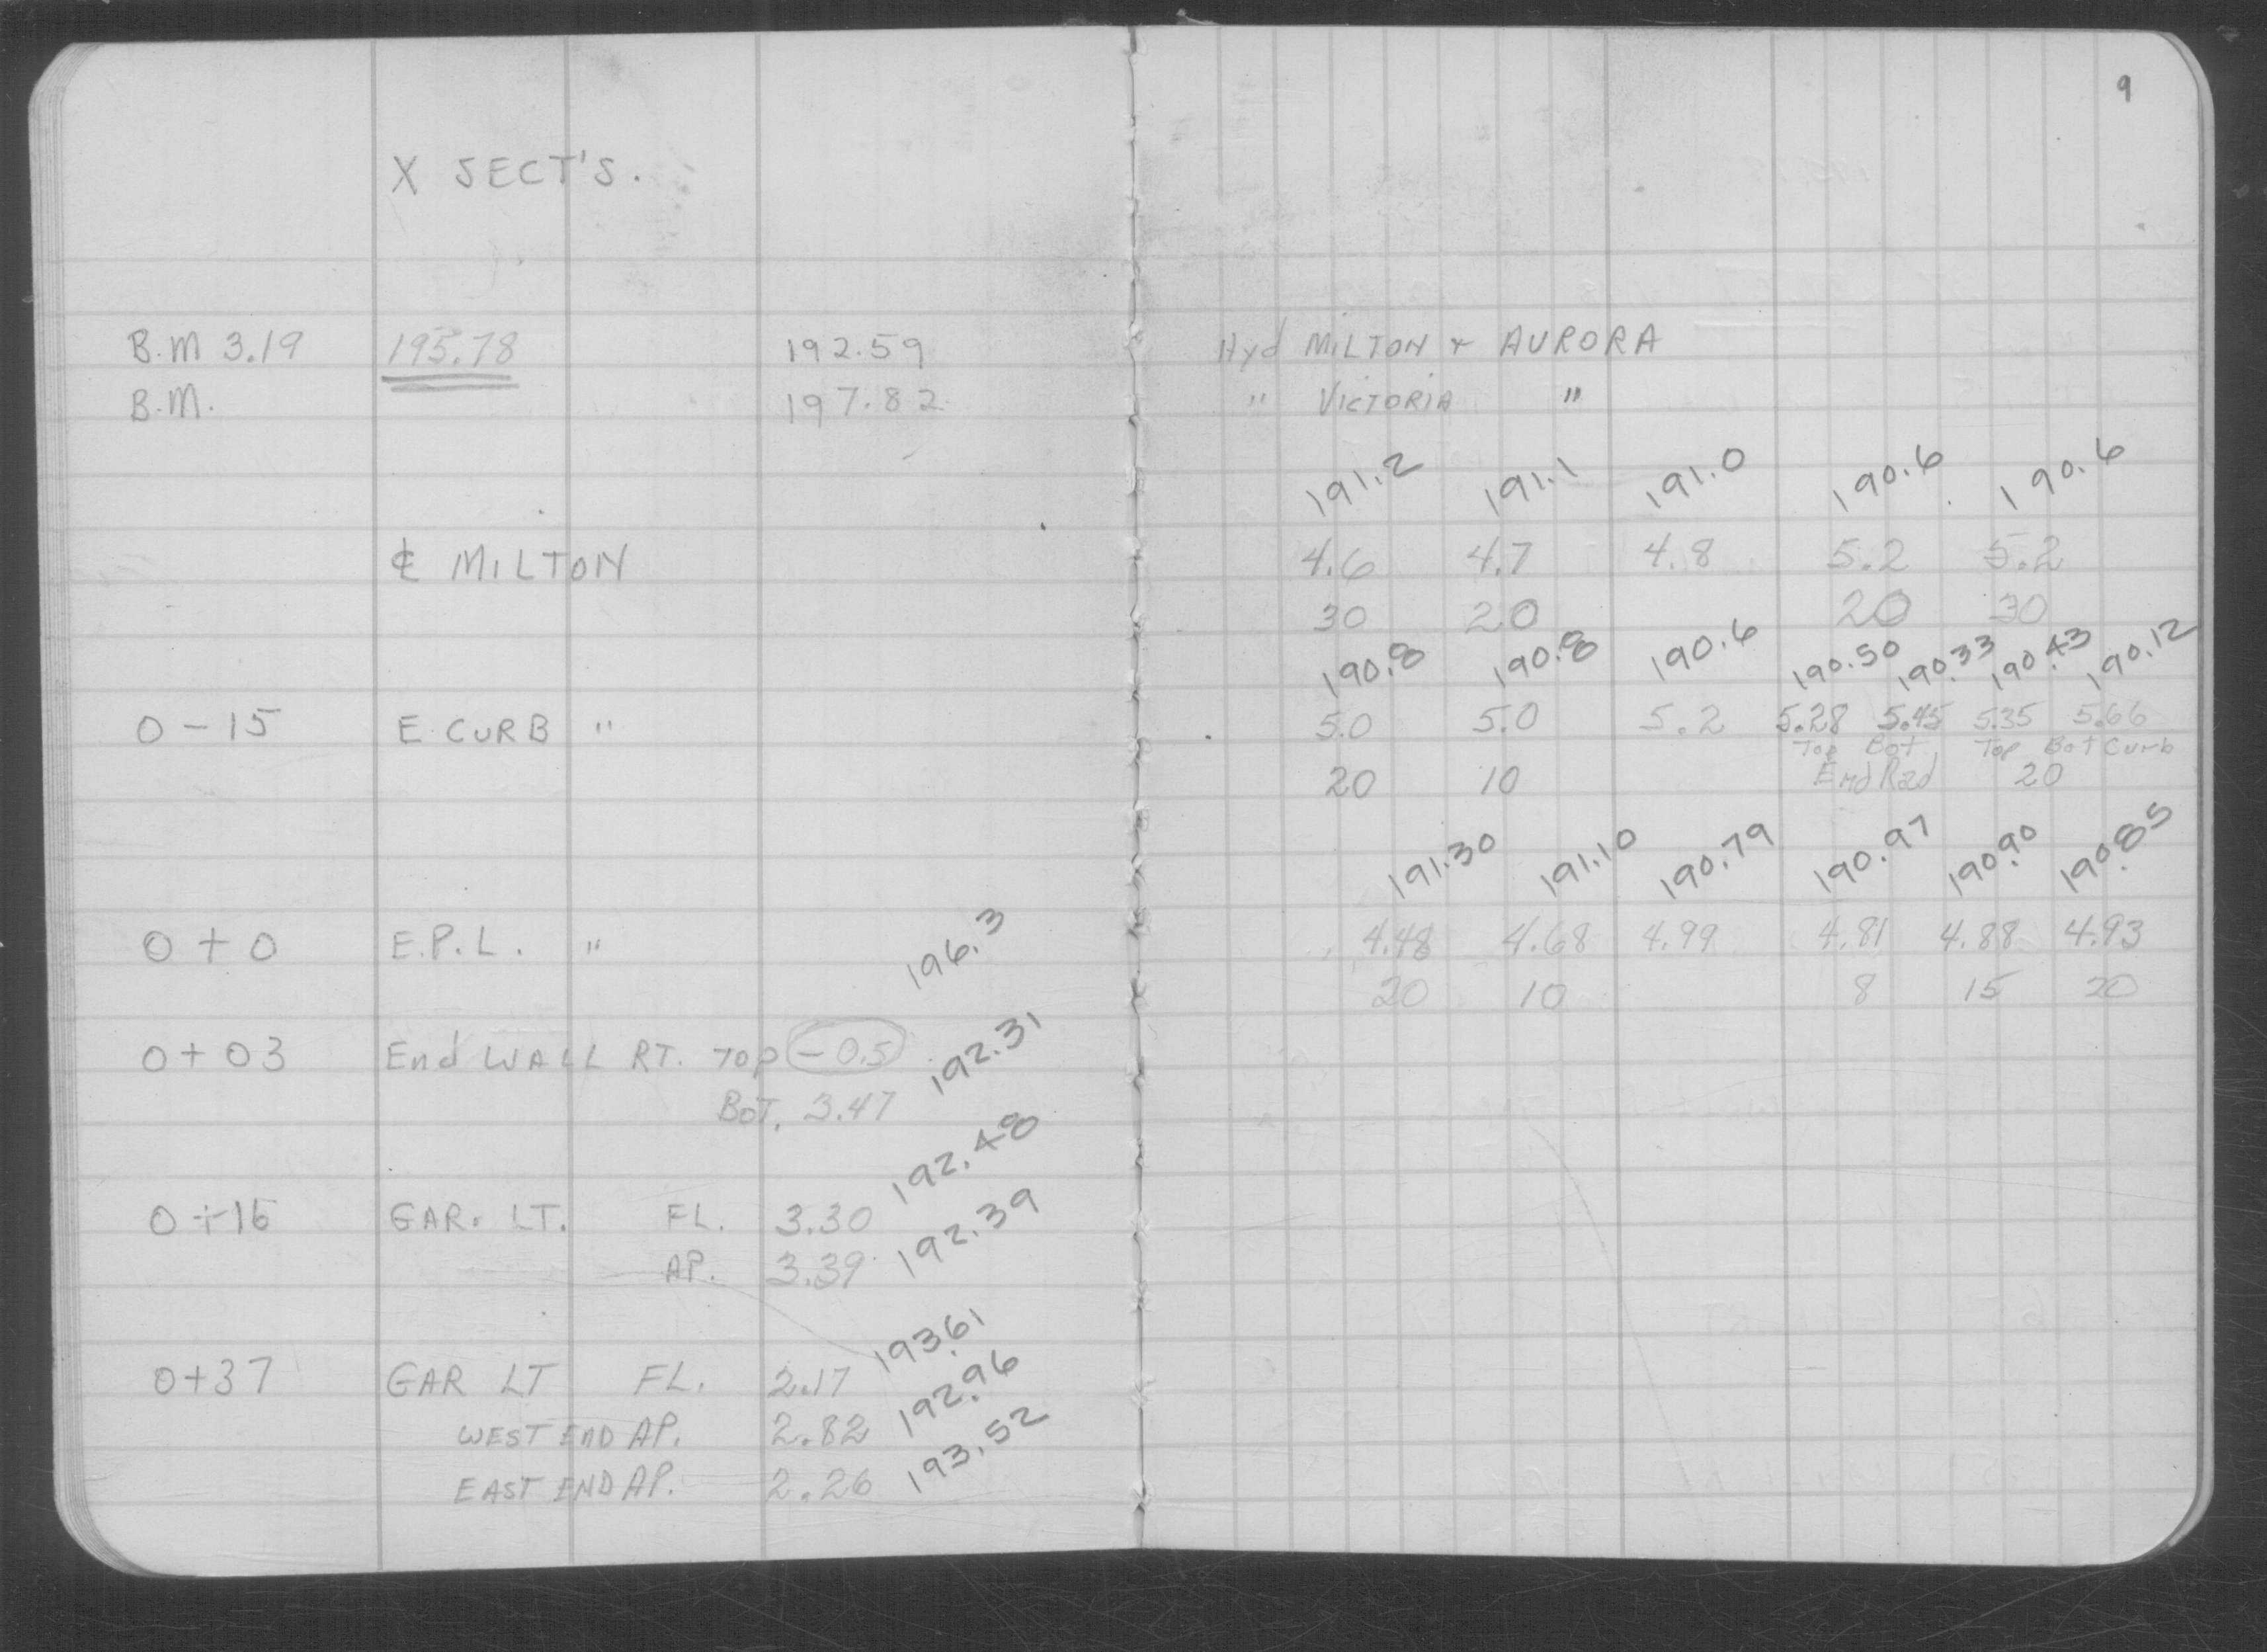 9
X SECT'S.
B.M 3.19 195.78 192.59 Hyd MILTON + AURORA
B.M. 197.82 " VICTORIA "
191.2 191.1 191.0 190.6 190.6
℄ MILTON 4.6 4.7 4.8 5.2 5.2
30 20 20 30
190.8 190.8 190.6 190.50 190.33 190.43 190.12
0 - 15 E CURB " 5.0 5.0 5.2 5.28 5.45 5.35 5.66
Top Bot Top Bot Curb
20 10 End Rad 20
191.30 191.10 190.79 190.97 190.90 190.85
196.3
0 + 0 E.P.L. " 4.48 4.68 4.99 4.81 4.88 4.93
20 10 8 15 20
0 + 03 End WALL RT. TOP -0.5 192.31
BOT. 3.47
192.48
0+16 GAR. LT. FL. 3.30
AP. 3.39 192.39
0+37 GAR LT FL. 2.17 193.61
WEST END AP. 2.82 192.96
EAST END AP. 2.26 193.52